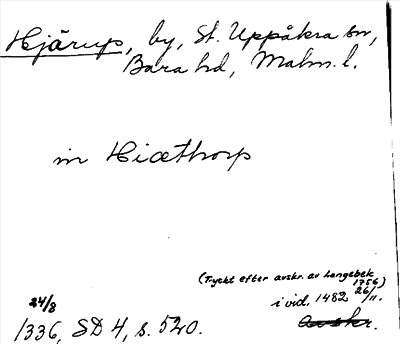 Hjärup, by, St. Uppåkra sn,
Bara hd, Malm. l.
in Hiæthorp
(Tryckt efter avskr. av Langebek
1756)
24/8 i vid. 1482 26/11.
1336, SD 4, s. 520. avskr.